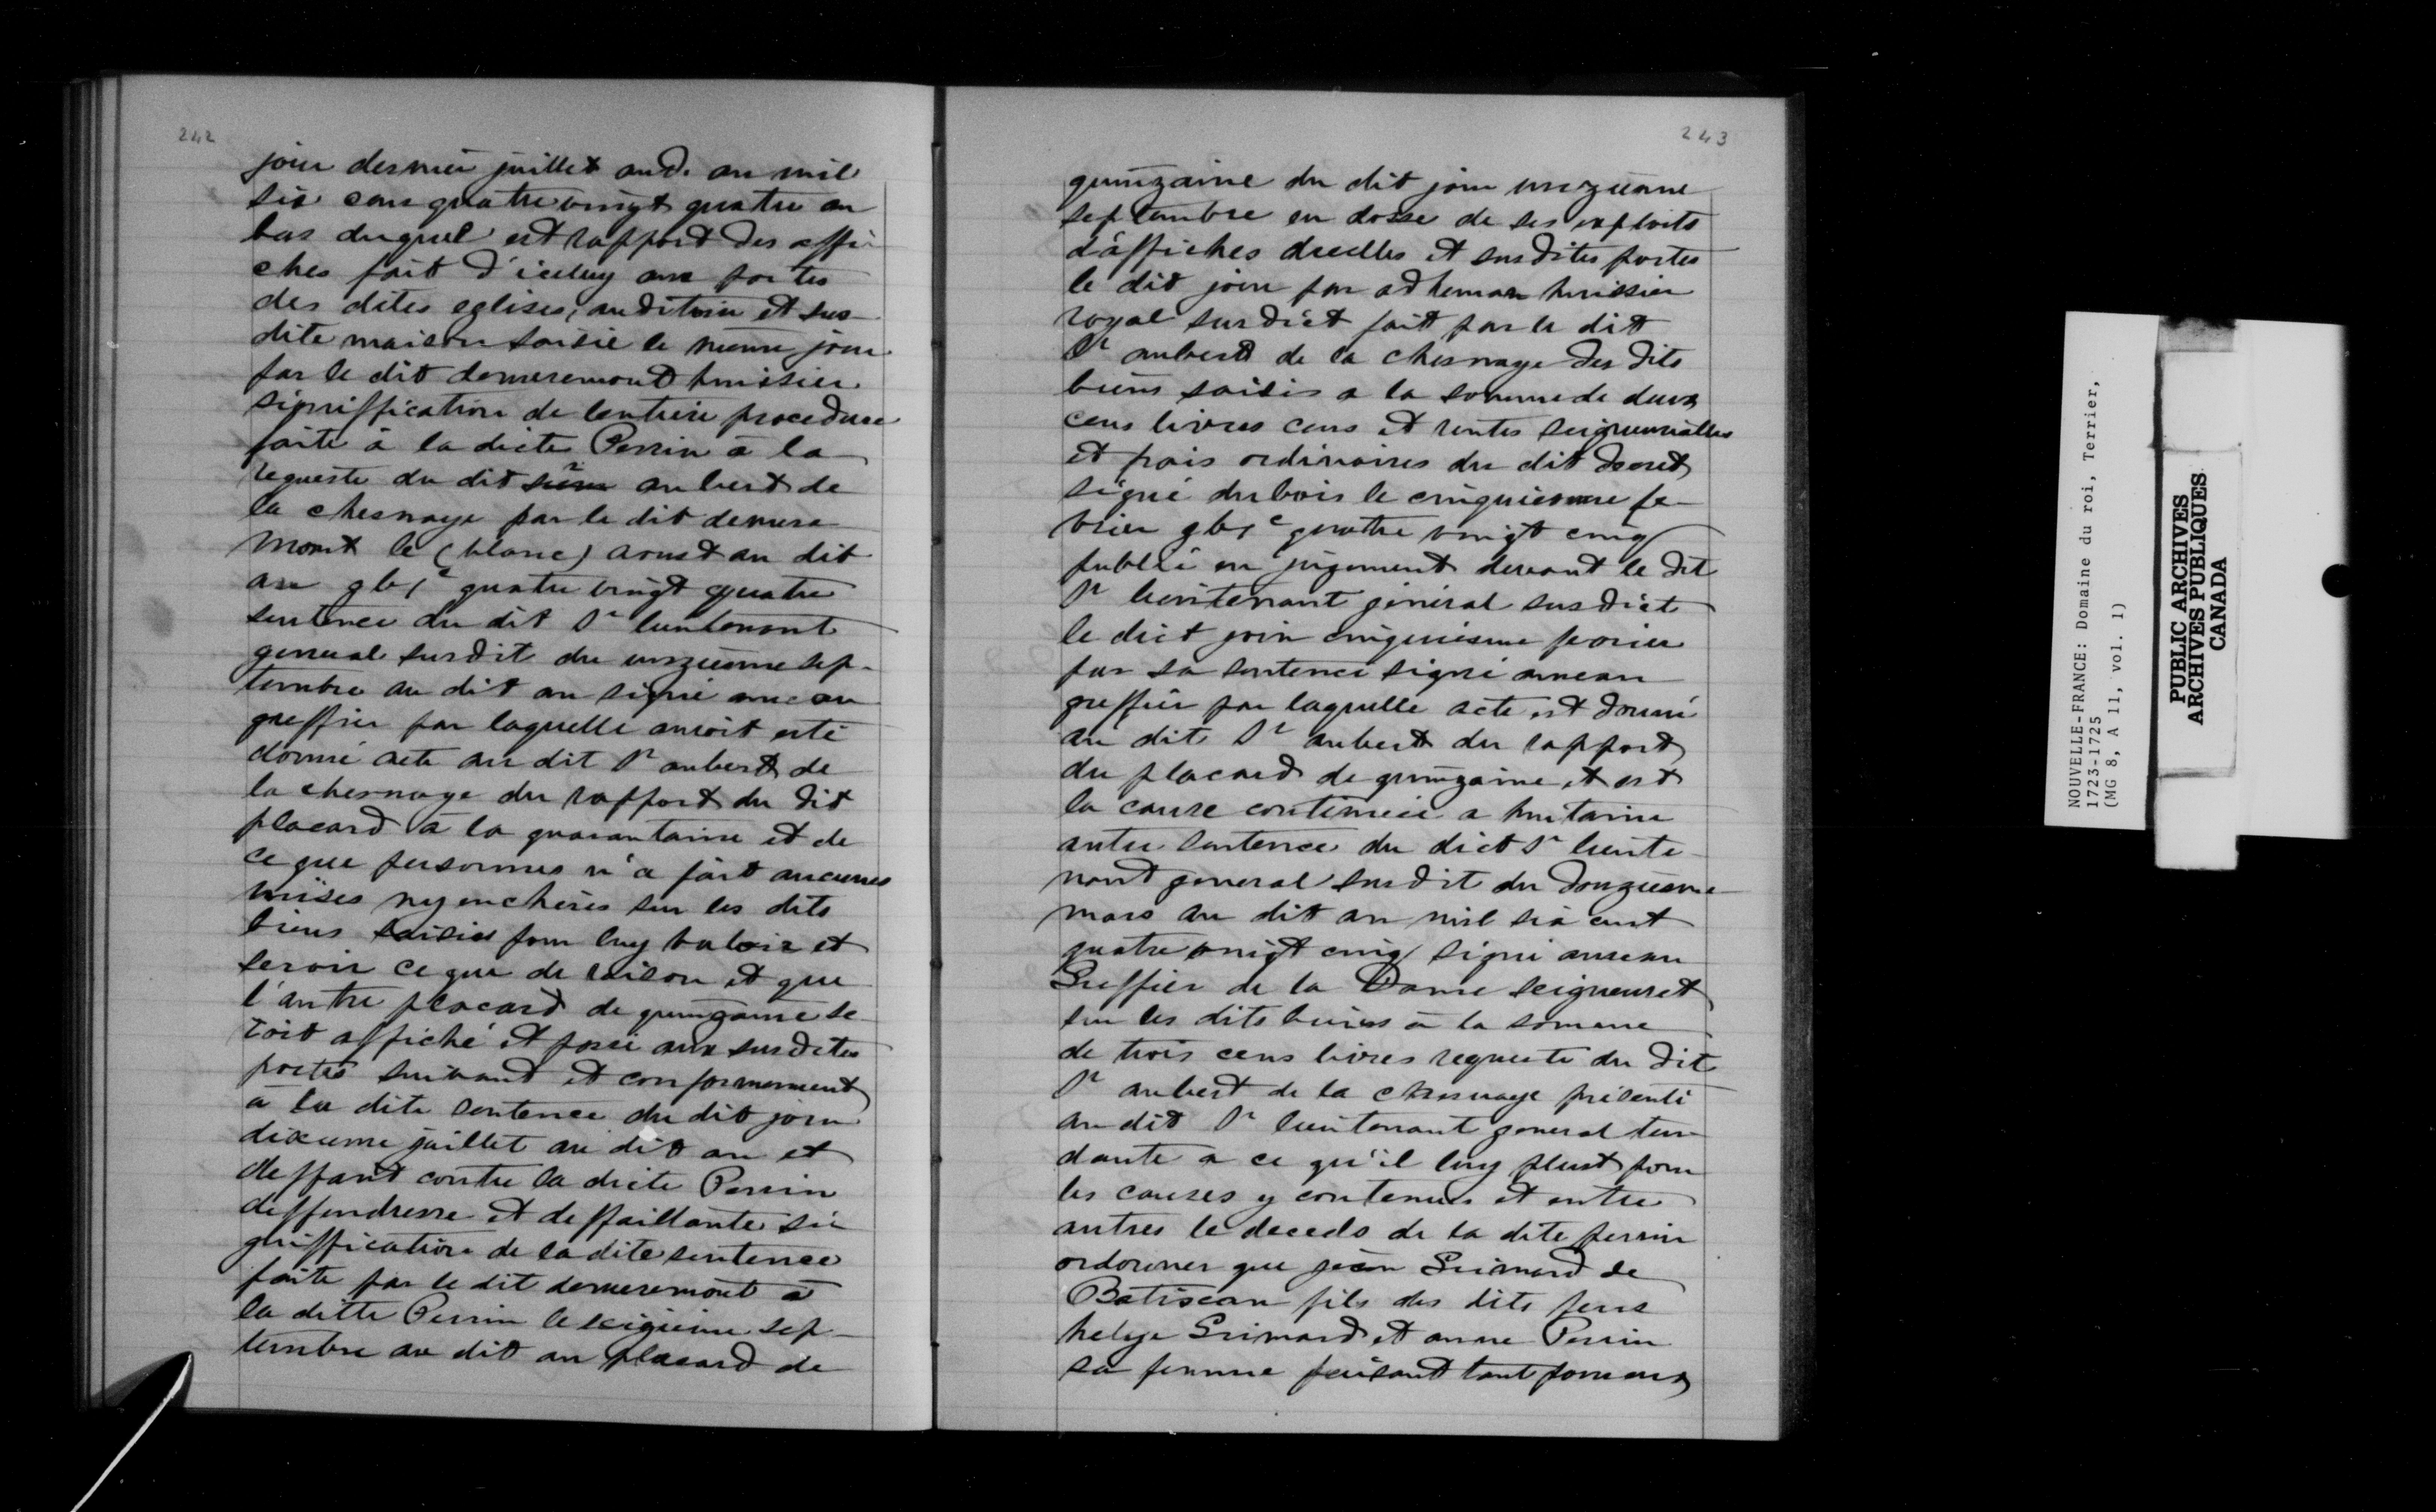 242
jour dernier juillet aud. an mil
six cens quatre vingt quatre au
bas duquel est rapport des affi-
ches fait d'iceluy aux portes
des dites eglises, auditoire et sus
dite maison saisie le meme jour
par le dit demeremont huissier
signiffication de lentiere procedure
faite à la dicte Perrin à la
requeste du dit sr aubert de
la chesnaye par le dit demere
mont le (blanc) aoust au dit
an gbic quatre vingt quatre
sentence du dit Sr lieutenant
general susdit du unzieme sep-
tembre au dit an signé
greffier par laquelle auroit esté
donné acte au dit Sr aubert de
la chesnaye du rapport du dit
placard à la quarantaine et de
ce que personnes n'a fait aucunes
mises ny encheres sur les dits
biens saisies pour luy valoir et
servir ce que de raison et que
l'autre placard de quinzaine se
roit affiché et posé aux susdites
portes suivant et conformement
à la dite sentence du dit jour
dixieme juillet au dit an et
deffaut contre la dicte Perrin
deffendresse et deffaillante si
gniffication de la dite sentence
faite par le dit demeremont à
la ditte Perrin le seizieme sep-
tembre au dit an placard de
243
quinzaine du dit jour unzieme
septembre en dosse de ses exploits
d'affiches dicelles et susdites portes
le dit jour par adhemar huissier
royal susdict fait par le dit
Sr aubert de la chesnaye des dits
biens saisis a la somme de deux
cens livres cens et rentes seigneurialles
et frais ordinaires du dit decret
signé dubois le cinquiesme fe-
vrier gbic quatre vingt cinq
publié en jugement devant le dit
Sr lieutenant général susdict
le dict jour cinquiesme fevrier
par sa sentence signé
greffier par laquelle acte est donné
au dit Sr aubert du rapport
du placard de quinzaine et est
la cause continuée a huitaine
autre sentence du dict Sr lieute
nant general susdit du douzieme
mars au dit an mil six cent
quatre vingt cinq signé
Greffier de la Dame seigneuret
sur les dits biens à la somme
de trois cens livres requeste du dit
Sr aubert de la chesnaye présenté
au dit Sr lieutenant general ten-
dante a ce qu'il luy plust pour
les causes y contenues et entre
autres le deceds de la dite perrin
ordonner que jean Grimard de
Batiscan fils des dits feus
helye Grimard et anne Perrin
sa femme faisant tant pour eux
NOUVELLE-FRANCE: Domaine du roi, Terrier,
1723-1725
(MG 8, A 11, vol. 1)
PUBLIC ARCHIVES
ARCHIVES PUBLIQUES
CANADA